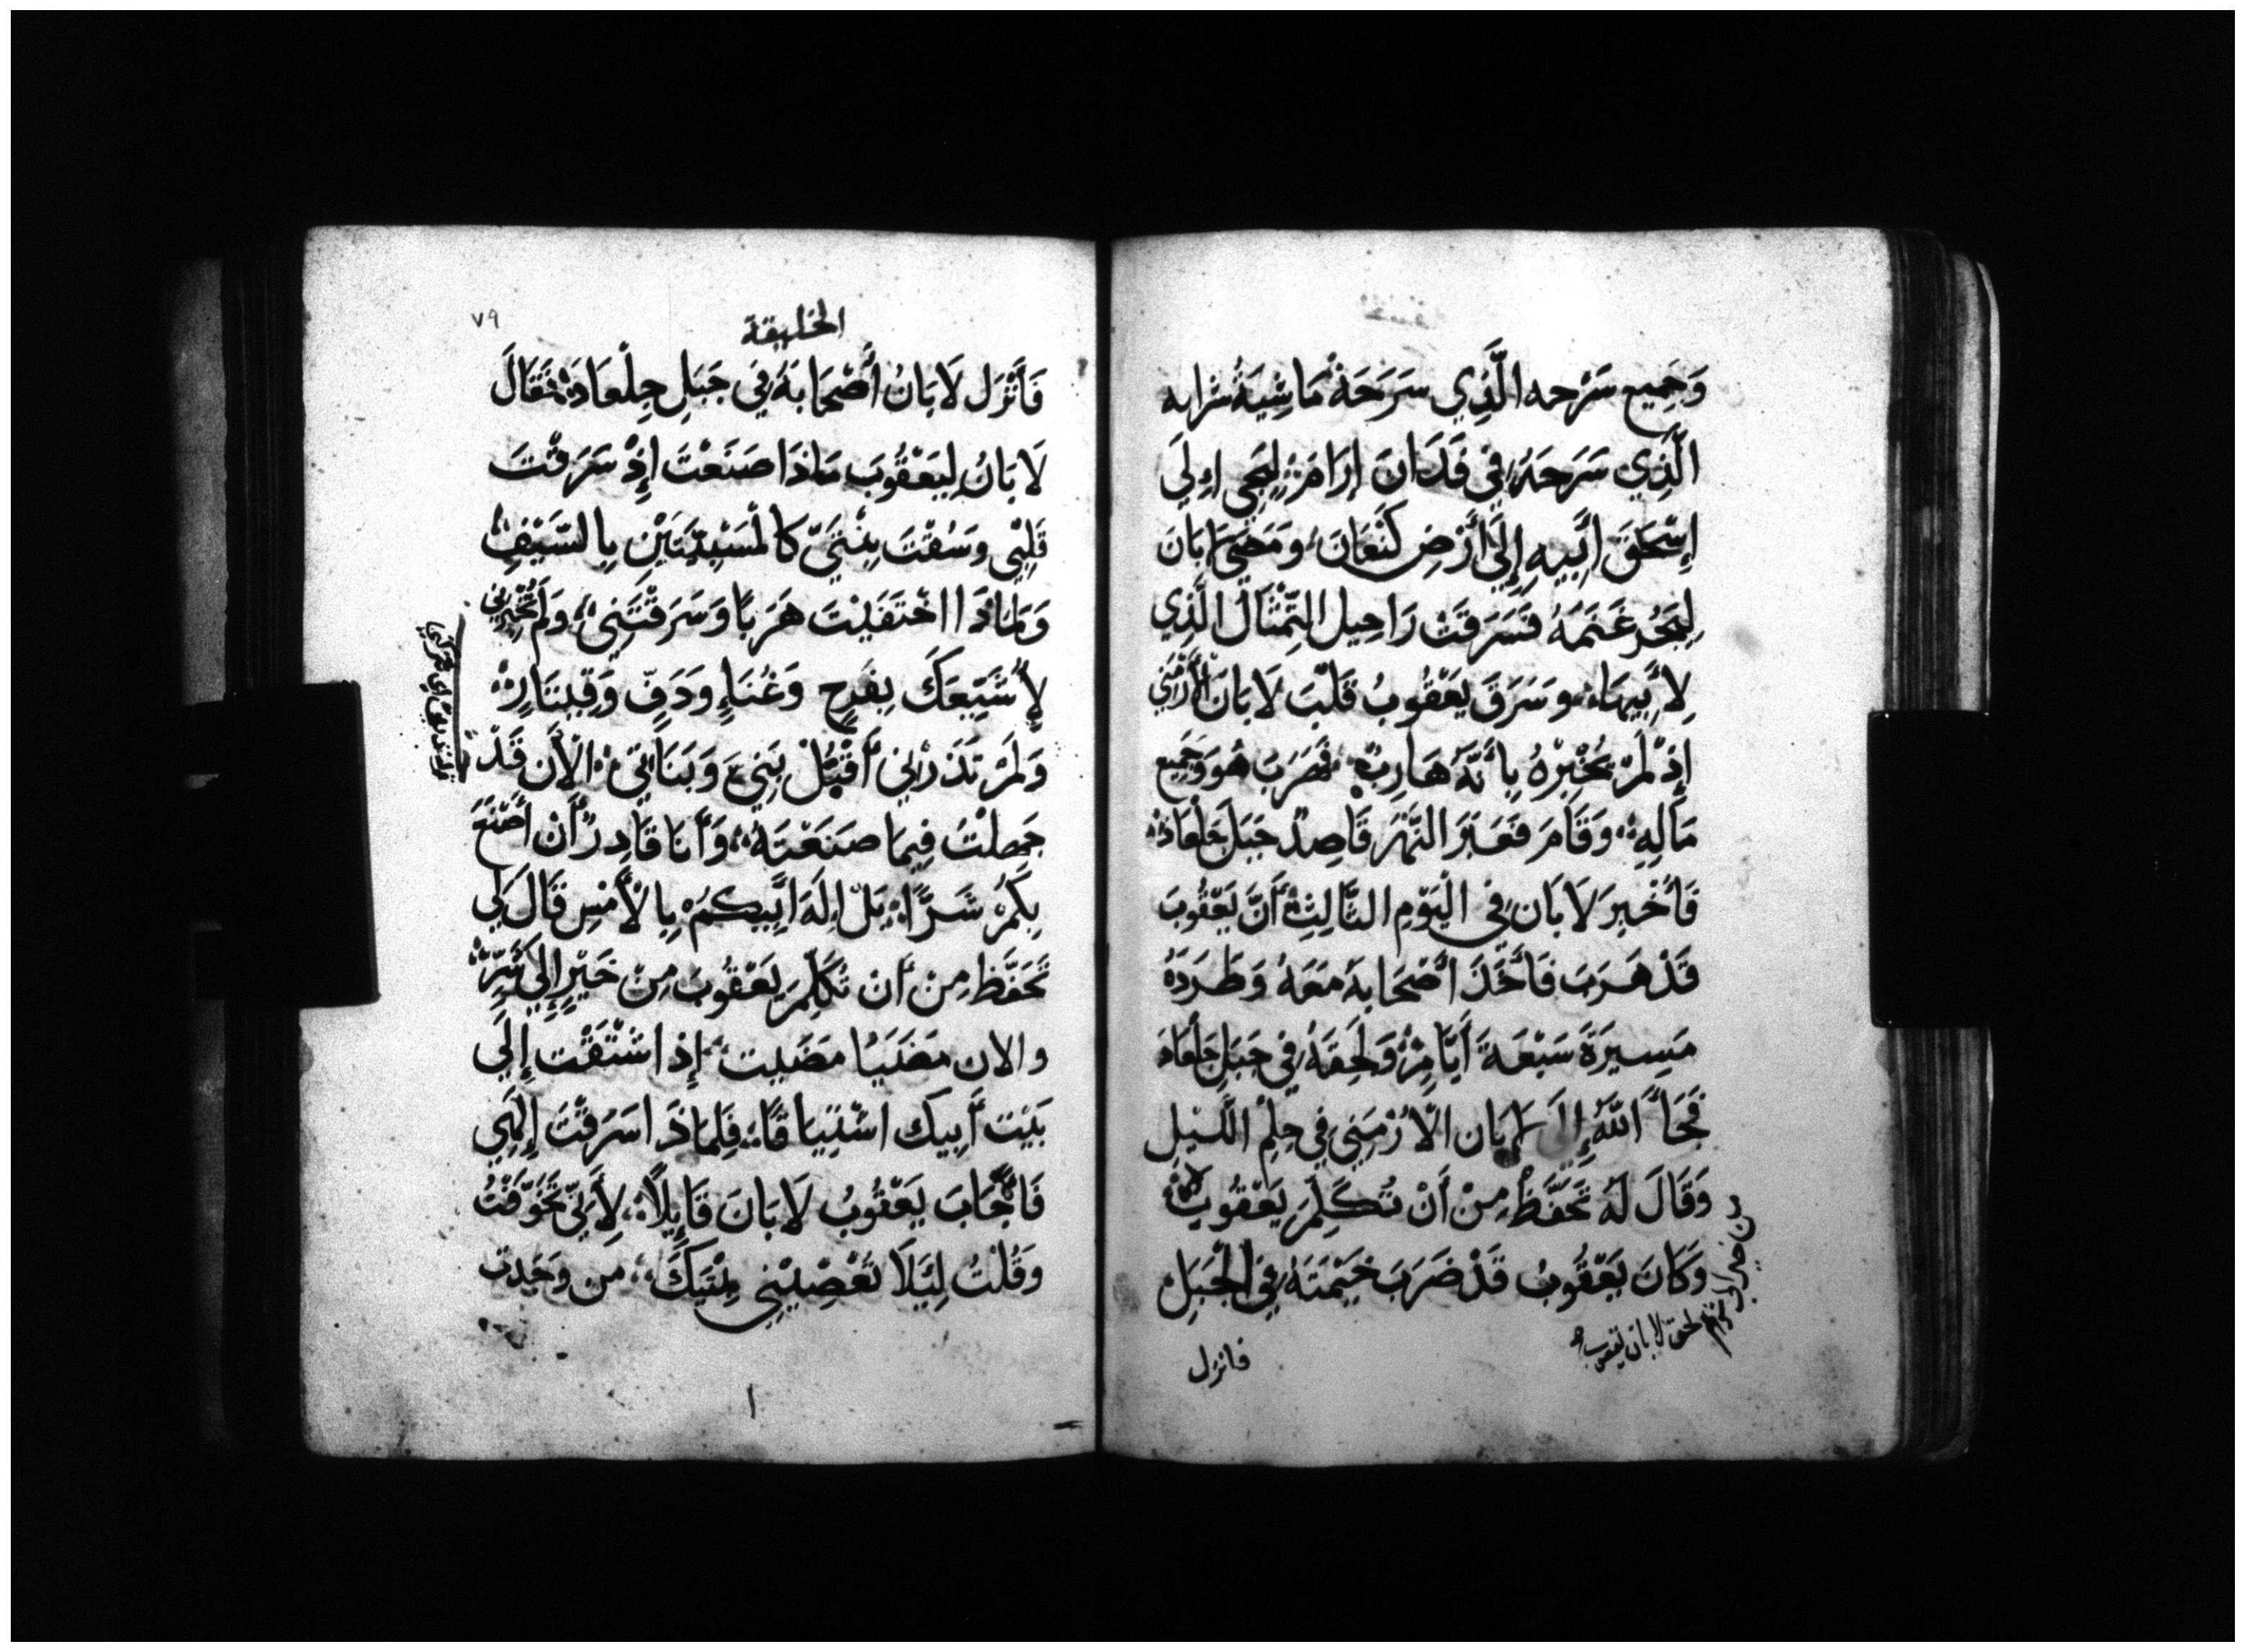 وَجَمِيع سَرْحه الَّذِي سَرَحَهُ مَاشِيَةُ شراىه
الَّذِي سَرَحَهُ فِي فَدَانَ إِرَامَ لِيَجِي اِولَي
إِسْحَقَ أَبِيهِ إِلَي أَرْضِ كَنْعَانَ وَمَضَي لَابَان
لِيَجُزَ غَنَمَهُ فَسَرَقَتْ رَاحِيل التِّمْثَالُ الَّذِي
لِأَبِيهَا وَسَرَقَ يَعْقُوبُ قَلْبَ لَابَانَ الْأَرْمَنِي
إِذْ لَمْ يُخْبِرْهُ بِأَنَّهُ هَارِبٌ فَهَرَبَ هُوَ وَجَمِيع
مَالِهِ وَقَامَ فَعَبَرَ النَّهْرَ قَاصِدً جَبَلَ جَلْعَادْ
فَأُخْبِرَ لَابَان فِي الْيَوْمِ الثَّالِثِ أَنَّ يَعْقُوبَ
قَدْ هَرَبَ فَأَخَذَ أَصْحَابَهُ مَعَهُ وَطَرَدَهُ
مَسِيرَةَ سَبْعَةَ أَيَّامٍ وَلَحِقَهُ فِي جَبَلِ جَلْعَادَ
فَجَأَ اللَّهُ إِلَي لَابَان الْأَرْمَنِي فِي حِلْمِ اللَّيْلِ
وَقَالَ لَهُ تَحَفَّظْ مِنْ أَنْ تُكَلِّمَ يَعْقُوبَ
وَكَانَ يَعْقُوبُ قَدْ ضَرَبَ خَيْمَتَهُ فِي الْجَبَلِ
لحق لابان يعقوب
فانزل
٧٩
الخليقة
فَأَنْزَل لَابَانُ أَصْحَابَهُ فِي جَبَلِ جِلْعَادَ فَقَالَ
لَابَانُ لِيَعْقُوبَ مَاذَا صَنَعْتَ إِذْ سَرَقْتَ
قَلْبِي وَسُقْتَ بِنْتَيَّ كَالْمَسْبِيَّتَيْنِ بِالسَّيْفِ
وَلِمَاذَا اخْتَفَيْتَ هَرَبًا وَسَرَقْتَنِي وَلَمْ تُخْبِرْنِي
لِأُشَيِّعَكَ بِفَرَحٍ وَغُنَاءٍ وَدَفٍّ وَقِيثَارِ
وَلَمْ تَذَرْنِي أُقَبِّلْ بَنِيَّ وَبَنَاتِي الْأَن قَدْ
جَهِلْتُ فِيمَا صَنَعْتَهُ وَأَنَا قَادِرٌ أَنْ أَصْنَعَ
بِكُمْ شَرًّا بَلْ إِلَهَ أَبِيكُمْ بِالْأَمْسِ قَالَ لِي
تَحَفَّظ مِنْ أَنْ تُكَلِّمَ يَعْقُوبَ مِنْ خَيْرٍ إِلَي شَرٍّ
والان مَضَيًا مَضَيت إِذ اشْتَقْت إِلَي
بَيْت أَبِيكَ اشْتِيَاقًا فَلِمَاذَا سَرَقْتَ إِلَهِي
فَأَجَابَ يَعْقُوبُ لَابَانَ قَايِلاً لِأَنِّي تَخَوَّفْتُ
وَقُلْتُ لِيَلَا تَغْصِبْنِي بِنْتَيْكَ مَن وَجَدت